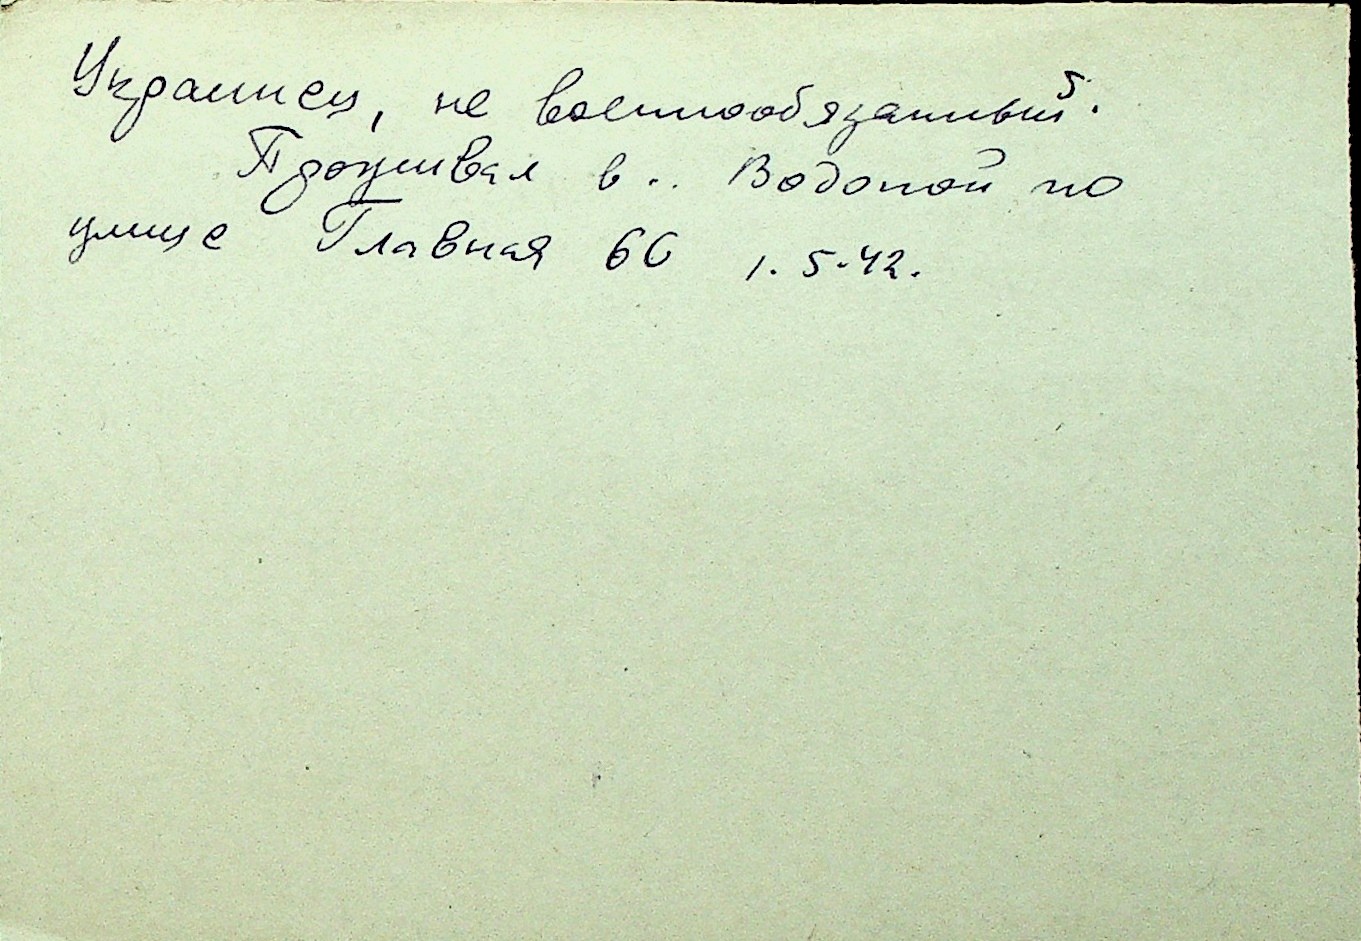 Украинец, не военнообязанный.
Проживал в.. Водопой по
улице Главная 66 1.5.42.